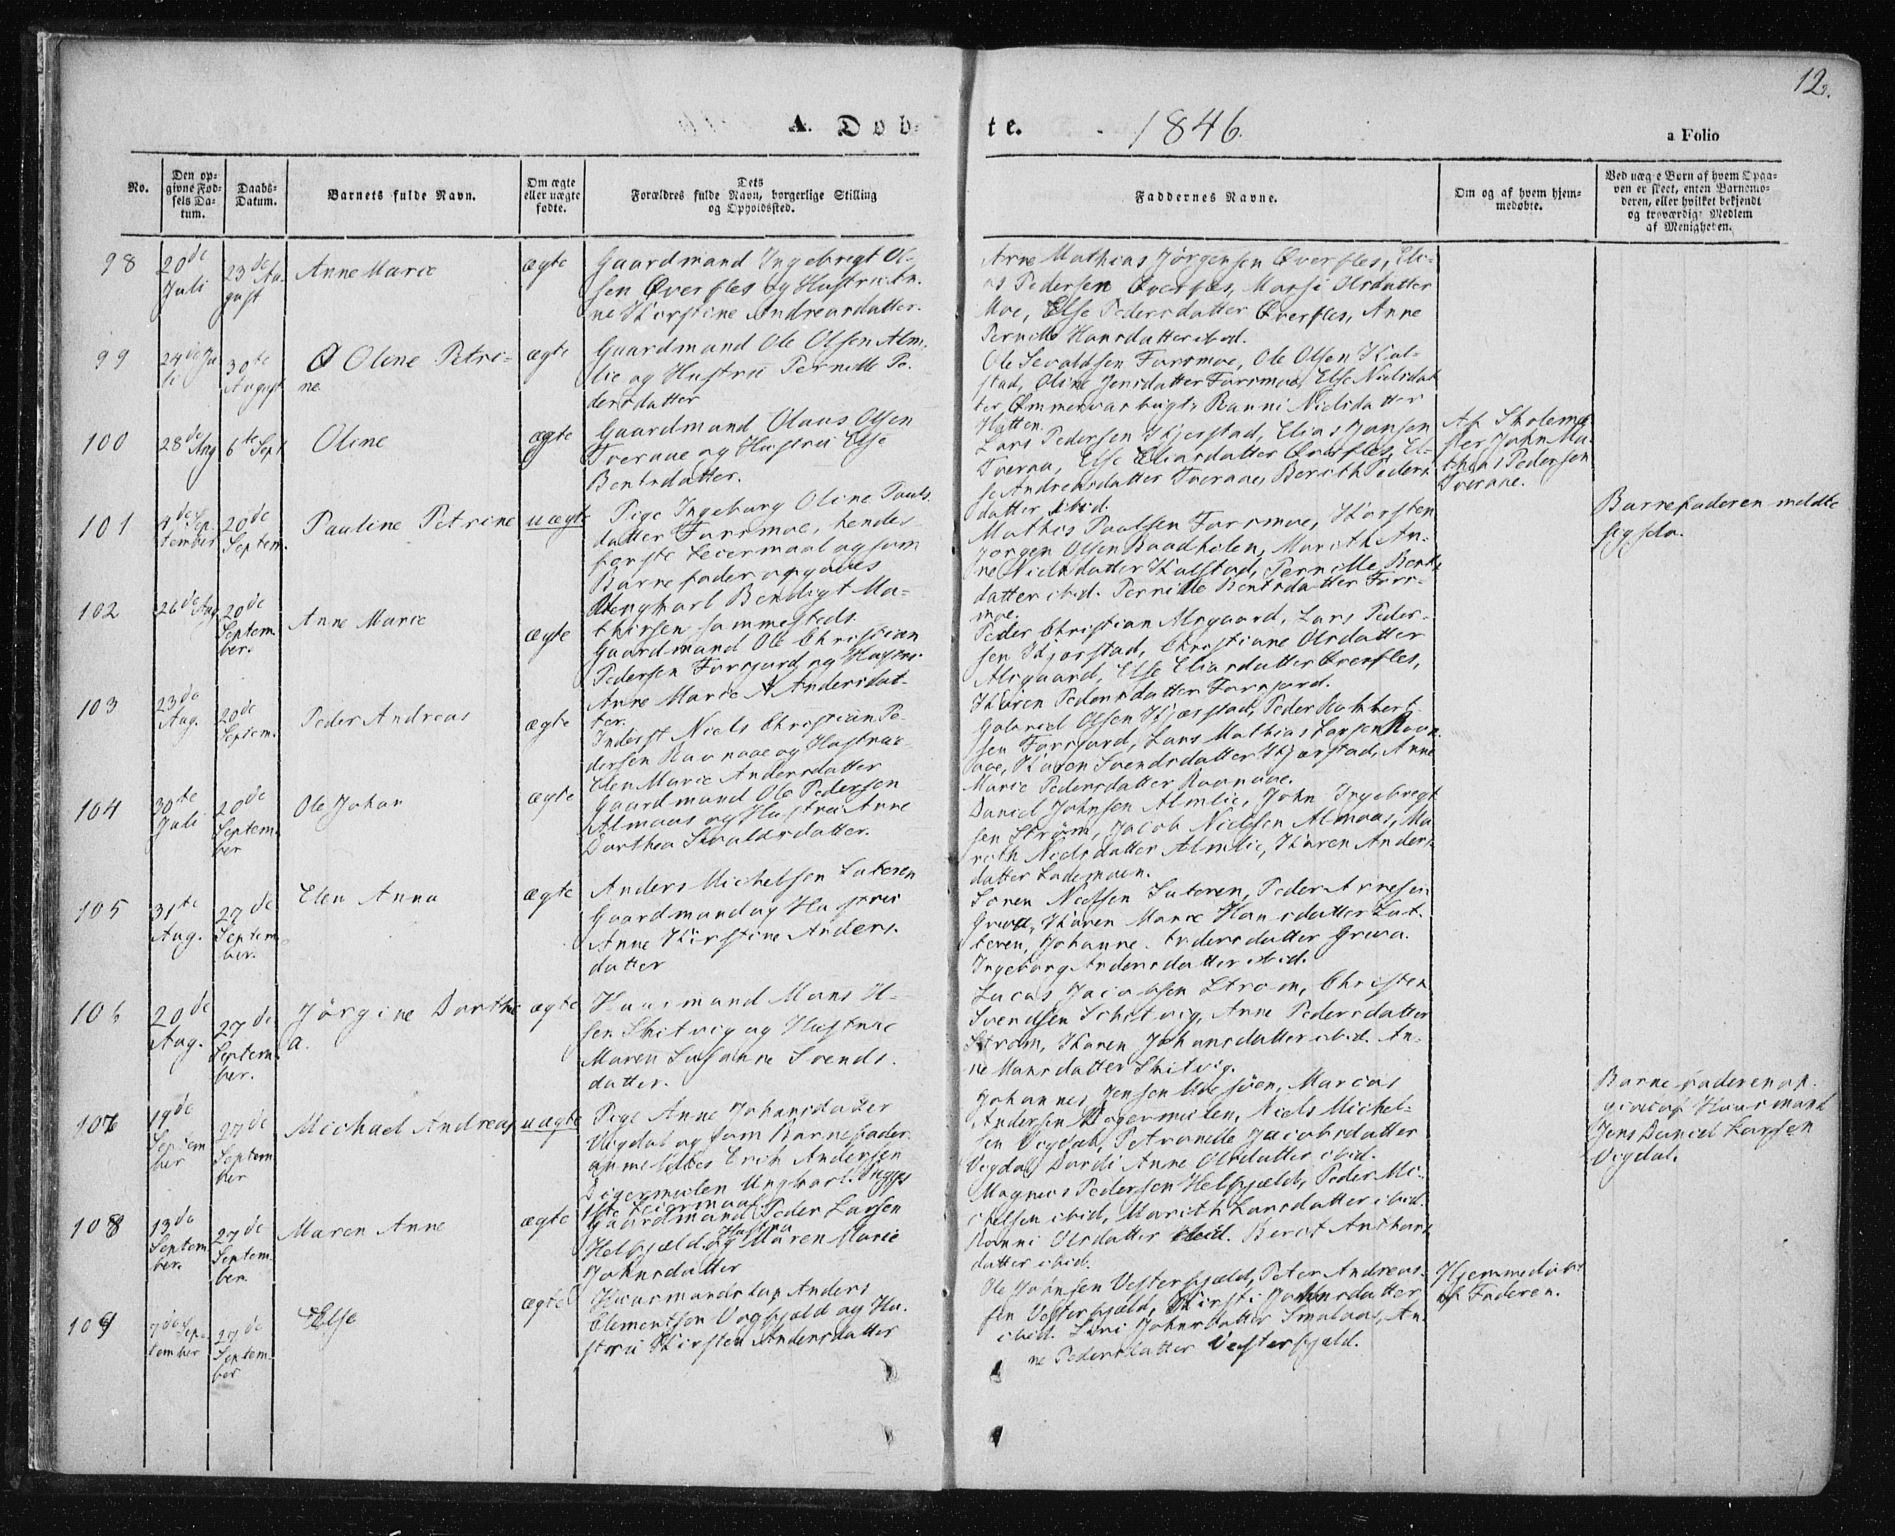 12.
A. Døb-
te.
1846.
a Folio
No.
Den op-
givne Fød-
sels Da-
tum.
Daabs-
Datum.
Barnets fulde Navn.
Om ægte
eller uægte
fødte.
Dets
Forældres fulde Navn, borgerlige Stilling
og Opholdssted.
Faddernes Navne.
Om og af hvem hjem-
medøbte.
Ved uægte Børn af hvem Opga-
ven er skeet, enten Barnemo-
deren, eller hvilket bekjendt
og troværdigt Medlem
af Menigheden.
98
20de
Juli
23de Au-
gust
Anne Marie
ægte
Gaardmand Ingebrigt Ol-
sen Øverfles og Hustrue An-
ne Kirstine Andreasdatter.
Arne Mathias Jørgensen Øverfles, Eli-
as Pedersen Øverfles, Marsi Olsdatter
Moe, Else Pedersdatter Øverfles, Anne
Pernille Hansdatter ibid.
99
24de Ju-
li
30te
August
Oline Petri-
ne
ægte
Gaardmand Ole Olsen Alm-
lie og Hustrue Pernille Pe-
dersdatter
Ole Sevaldsen Farsmoe, Ole Olsen Kal-
stad, Oline Jensdatter Farsmoe, Else Nielsdat
ter Ømmervasbugt, Ranni Nielsdatter
Hatten.
100
28de Aug
6te Sept
Oline
ægte
Gaardmand Olaus Olsen
Tveraae og Hustrue Else
Bentsdatter.
Lars Pedersen Kjerstad, Elias Jonsen
Tveraa, Else Eliasdatter Øverfles, El-
se Andreasdatter Tveraae, Berith Peders
datter ibid.
Af Skoleme
ster John Ma-
thias Pedersen
Tveraae.
101
Sep-
tember
20de
Septem.
Pauline Petrine
uægte
Pige Ingeborg Oline Pauls
datter Farsmoe, hendes
første Leiermaal og som
Barnefader opgaves
Ungkarl Bendigt Ma-
thisen sammesteds
Mathis Paulsen Farsmoe, Karsten
Jørgen Olsen Baadholen, Marith An-
ne Nielsdatter Kalstad, Pernille Bents
datter ibid. Pernille Bentsdatter Fars-
moe.
Barnefaderen meldte
sig sela.
102
26de Aug
20de
Septem
ber.
Anne Marie
ægte
Gaardmand Ole Christian
Pedersen Farsjord og Hustru
Anne Marie Andersdat-
ter.
Peder Christian Alsgaard, Lars Peder-
sen Kjerstad, Christiane Olsdatter
Alsgaard, Else Eliasdatter Øverfles,
Karen Pedersdatter Farsjord.
103
23de
Aug.
20de
Septem.
Peder Andreas
ægte
Inderst Niels Christian Pe-
dersen Ravnaae og Hustrue
Elen Marie Andersdatter
Gabriel Olsen Kjerstad, Peder
sen Farsjord, Lars Mathias Larsen Ravn-
aae, Karen Svendsdatter Kjerstad, Anne
Marie Pedersdatter Ravnaae.
104
30te
Juli
20de
Septem-
ber
Ole Johan
ægte
Gaardmand Ole Pedersen
Almaas og Hustrue Anne
Dorthea Sivaldsdatter.
Daniel Johnsen Almlie, John Ingebrigt
sen Strøm, Jacob Nielsen Almaas, Ma-
rith Nielsdatter Almlie, Karen Anders-
datter Lademoen.
105
31te
Aug.
27de
Septem
ber.
Elen Anna
ægte
Anders Michelsen Luteren
Gaardmand og Hustrue
Anne Kirstine Anders-
datter
Søren Nielsen Luteren, Peder Arnesen
Grua, Karen Marie Hansdatter Lut-
teren, Johanne Andersdatter Grua.
Ingeborg Andersdatter ibid.
106
20de
Aug.
27de
Septem-
ber.
Jørgine Dorthe
a.
ægte
Huusmand Mons H-
sen Skitvig og Hustrue
Maren Susanne Svends-
datter.
Lucas Jacobsen Strøm, Christen
Svendsen Schitvig, Anne Pedersdatter
Strøm, Karen Johansdatter ibid. An-
ne Mansdatter Skitvig.
107
19de
Septem
ber
27de
Septem
ber
Michael Andreas
uægte
Pige Anne Johansdatter
Vegdal og som Barnefader
anmeldtes Erik Andersen
Digermulen Ungkarl. Begges
1ste Leiermaal
Johannes Jensen Mosjøen, Marcus
Andersen Digermulen, Niels Michel-
sen Vegdal, Petronelle Jacobsdatter
Vegdal, Dordi Anne Olsdatter ibid.
Barnefaderen op-
givet af Huusmand
Jens Daniel Larsen
Vegdal.
108
13de
Septem
ber.
27de
Septem-
ber.
Maren Anne
ægte
Gaardmand Peder Larsen
Helfjeld og Hustru Maren Marie
Johnsdatter
Magnus Pedersen Helfjeld, Peder Mi-
chelsen ibid, Marith Larsdatter ibid.
Ranni Olsdatter ibid. Berit Anthons
datter ibid.
109
7de Sep-
tember
27de
Septem-
ber
Else
ægte
Huusmandskap Anders
Clementsen Vegfjeld og Hu-
strue Kirsten Andersdatter
Ole Johnsen Vesterfjeld, Peter Andreas-
sen Vesterfjeld, Kirsti Johnsdatter
ibid. Siri Johnsdatter Smalaas, An-
ne Pedersdatter Vesterfjeld.
Hjemmedøbt
af Faderen.